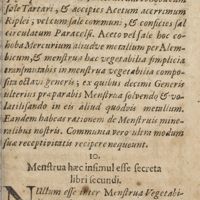 sale Tartari, & accipies Acetum acerrimum
Riplei; vel cum sale communi, & conficies sal
circulatum Paracelsi. Aceto vel sale hoc
cohoba Mercurium aliudve metallum per Alem-
bicum, & menstrua hæc vegetabilia simplicia
transmutabis in menstrua vegetabilia compo-
sita octavi generis; ex quibus decimi Generis
ulteriùs præparabis Menstrua solvendo & vo-
latilisando in eis aliud quodvis metallum.
Eandem habeas rationem de Menstruis mine-
ralibus nostris. Communia vero ultra modum
suæ receptivitatis recipere nequeunt.
10.
Menstrua hæc insimul esse secreta
libri secundi.
NUllum esse inter Menstrua Vegetabi-